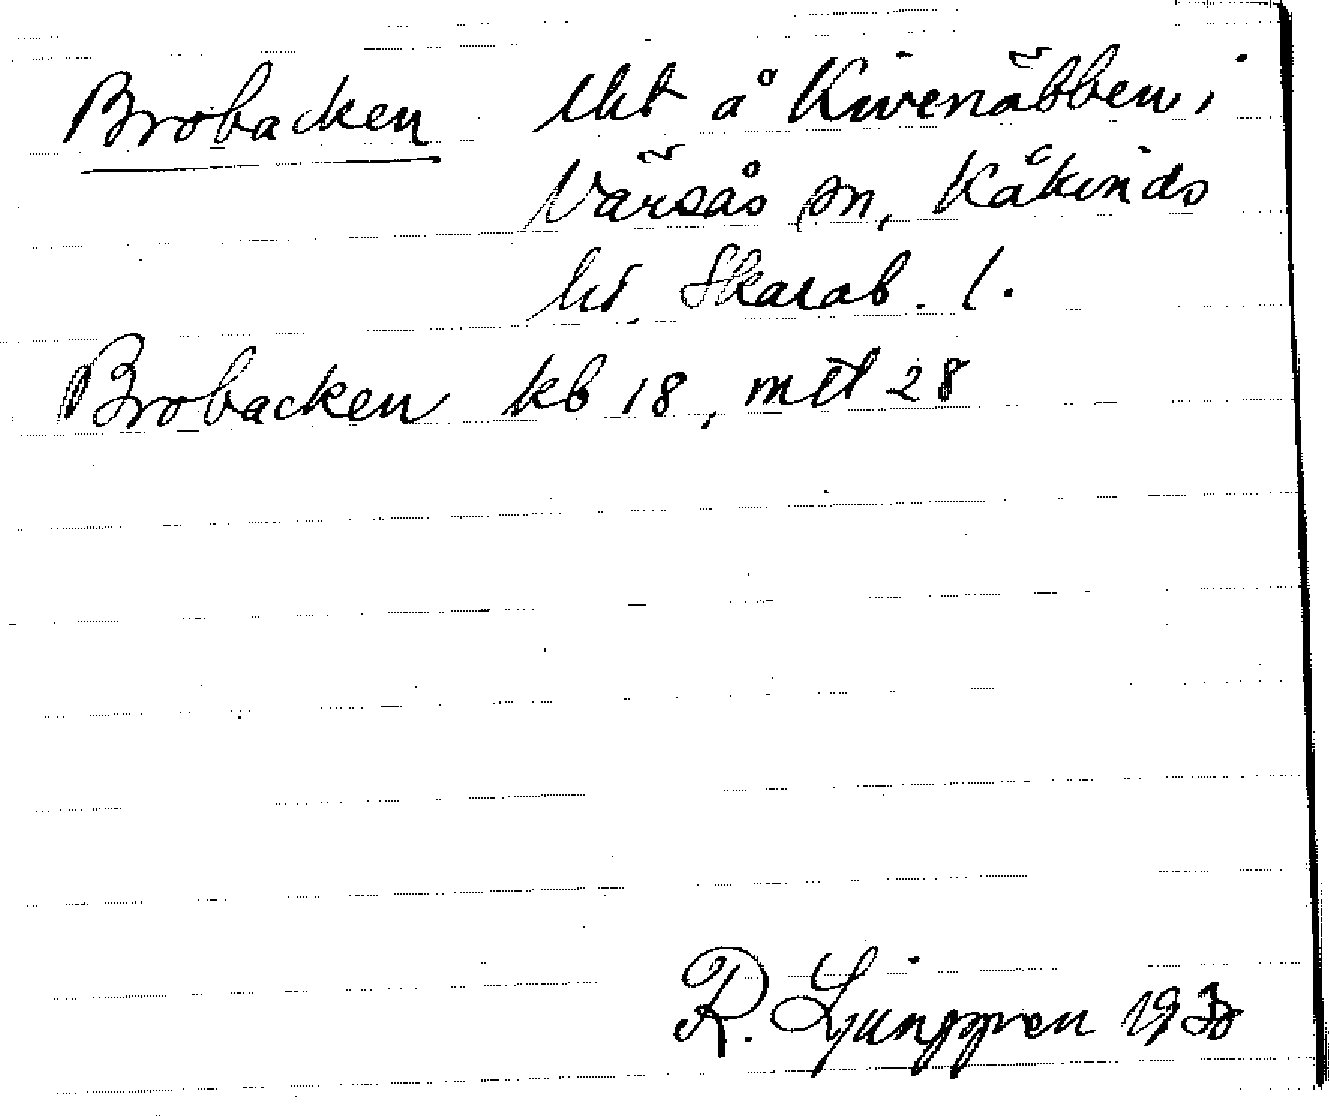 Brobacken lht å Kivenäbben i
Värsås sn, Kåkinds
hd, Skarab. l.
Brobacken kb 18, mtl 28
R. Ljunggren 19